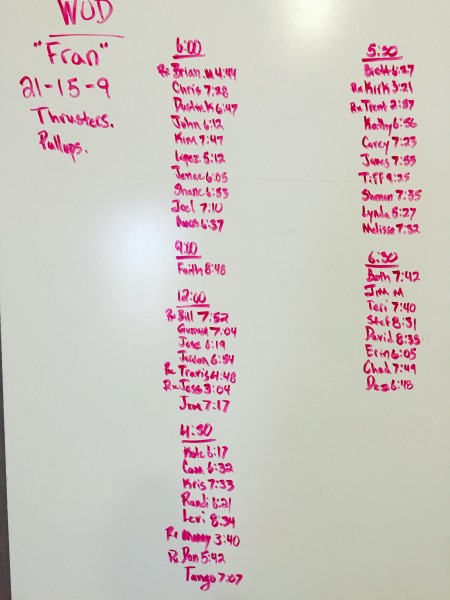 WOD
"Fran"
21-15-9
Thrusters.
Pullups.
6:00
Rx Brian.M 4:44
Chris 7:28
Dustin.K 6:47
John 6:12
Kim 7:47
Lopez 5:12
Jenee 6:05
Shane 6:53
Joel 7:10
6:37
9:00
Faith 8:48
12:00
Rx Bill 7:52
7:04
Jose 6:19
Jordan 6:54
Rx Travis 4:48
Rx Jess 3:04
7:17
4:30
Kate 6:17
Cam 6:32
Kris 7:33
Randi 6:21
Levi 8:34
Rx Manny 3:40
Rx Dan 5:42
Tango 7:07
5:30
Brett 6:27
Rx Kirk 3:21
Rx Trent 2:57
Kathy 6:56
Corey 7:23
James 7:55
Tiff 9:25
7:35
Lynda 5:27
Melissa 7:32
6:30
Beth 7:42
Jim M
Teri 7:40
Stef 8:31
David 8:35
Erin 6:05
Chad 7:49
Dez 6:48